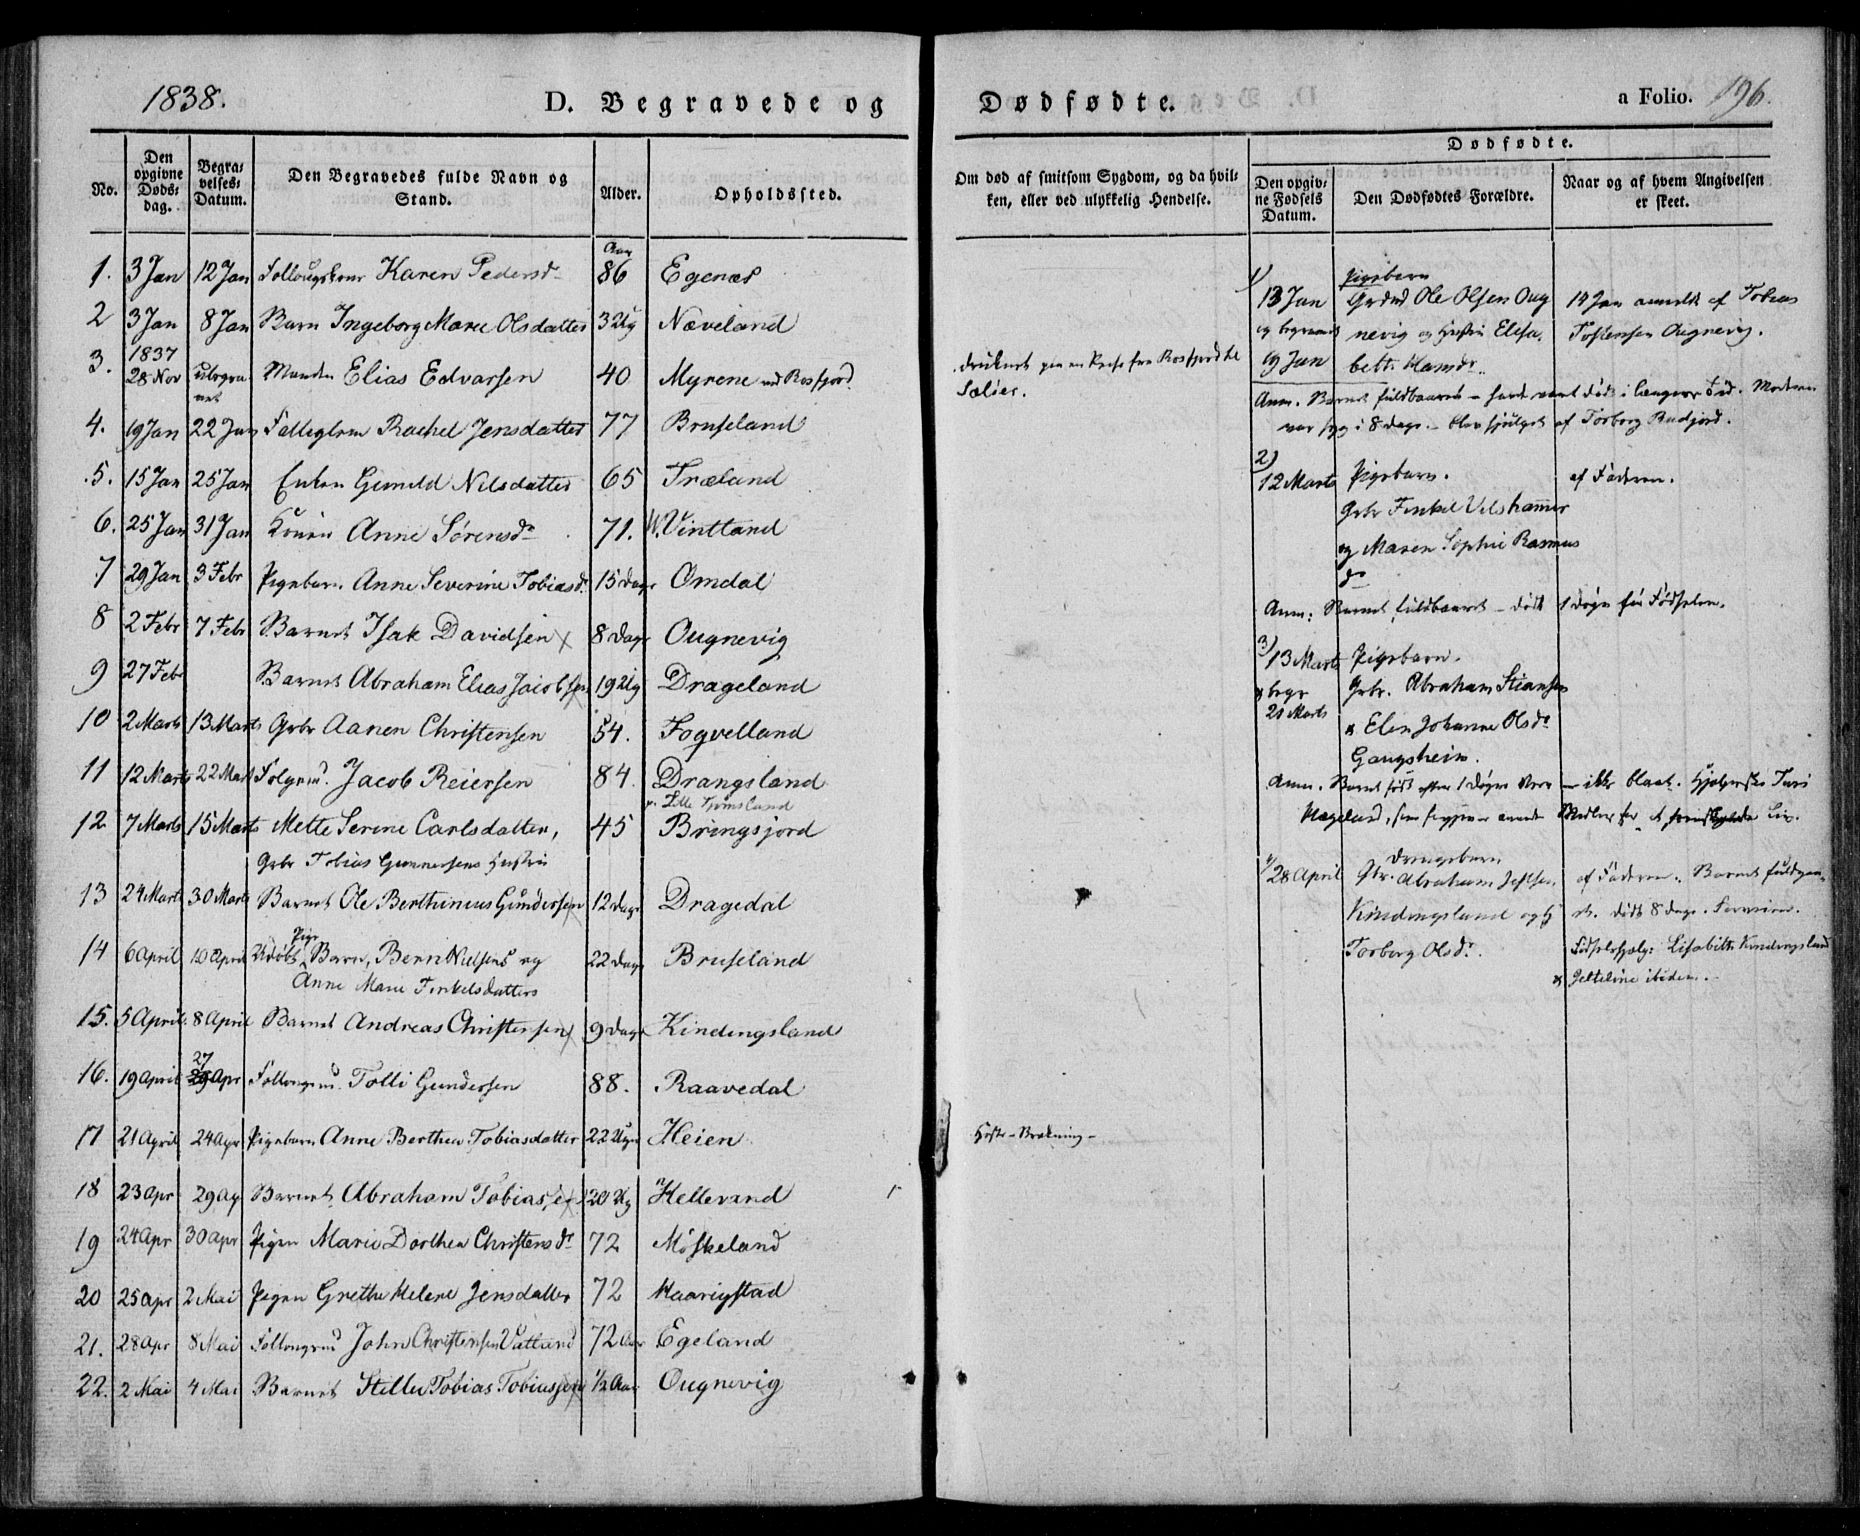 1838.
D. Begravede og Dødfødte.
a Folio. 196.
No.
Den opgivne Døds-dag.
Begra-velses-Datum.
Den Begravedes fulde Navn og Stand.
Alder.
Opholdssted.
Om død af smitsom Sygdom, og da hvil-ken, eller ved ulykkelig Hendelse.
Dødfødte.
Den opgiv-ne Fødsels Datum.
Den Dødfødtes Forældre.
Naar og af hvem Angivelsen er skeet.
1. 3 Jan 12 Jan Karen Pedersd 86 Aar Egenæs
2 3 Jan 8 Jan Barn Ingeborg Marie Olsdatter 3 Ug Næveland
3. 1837 28 Nov ubegravet Manden Elias Edvarsen 40 Myrene ved Rosfjord.
druknet paa en Reise fra Rosfjord til Seløer.
4. 19 Jan 22 Jan Rachel Jensdatter 77 Bruseland
5. 15 Jan 25 Jan Enken Gunild Nilsdatter 65 Træland
6. 25 Jan 31 Jan Konen Anne Sørensdr 71. Vintland
7 29 Jan 3 Febr Pigebarn Anne Severine Tobiasdr 15 Dage Omdal
8 2 Febr 7 Febr Barnet Isak Davidsen 8 Dage Ougnevig
9 27 Febr Barnet Abraham Elias Jacobsen 19 Ug Drageland
10 2 Marts 13 Marts Gbr Aanen Christensen 54. Fogvelland
11 12 Marts 22 Mart Folgmd. Jacob Reiersen 84. Drangsland
12 7 Marts 15 Marts Mette Serine Carlsdatter, 45 Bringsjord
Gbr Tobias Gunnersens Hustru
13 24 Marts 30 Marts Barnet Ole Berthinius Gundersen 12 Dage Dragedal
14 6 April 10 April Udøbt Pige Barn, Bernt Nielsens og 22 Dage Bruseland
Anne Marie Tinkelsdatters
15. 5 April 8 April Barnet Andreas Christensen 9 Dage Kindingsland
16. 19 April 27 Apr Tolli Gundersen 88. Raavedal
17 21 April 24 Apr Pigebarn Anne Berthea Tobiasdatter 22 Uger Heien
Hoste-Brækning-
18 23 Apr 29 Ap Barnet Abraham Tobiassen 20 Ug Hellevand
19 24 Apr 30 Apr Pigen Marie Dorthea Christensdr 72 Møskeland
20 25 Apr 2 Mai Pigen Grethe Helene Jensdatter 72 Haarigstad
21. 28 Apr 8 Mai John Christensen Vatland 72 Aar Egeland
22. 2 Mai 4 Mai Barnet Stelle Tobias Tobiassen 1/2 Aar Ougnevig
1) Pigebarn
13 Jan Ole Olsen Oug 14 Jan anmeldt af Tobias
og begravet nevig og Hustru Elisa Tostensen Ougnevig.
19 Jan beth Hansdr.
Anm. Barnet fuldbaaret - havde været Død i længere Tid. Moderen
var syg i 8 Dage. - blev hjulpet af Torborg Rudjord.
2)
12 Marts Pigebarn. af Faderen.
Gbr Tinkel Velshammer
og Maren Sophie Rasmus
dr
Anm: Barnet fuldbaaret - Dødt 1 Døgn før Fødselen.
3)
13 Marts Pigebarn.
begr Gbr. Abraham Stiansen
21 Marts & Elen Johanne Olsdr
Gangsheim.
Anm. Barnet født efter 1 Døgns - ikke blaat.
4) Drengebarn
28 April Gbr. Abraham af Faderen. Barnet
Kindingsland og H dødt 8 Dage
Torborg Olsdr. Lisabeth Kindingsland
ibidem.